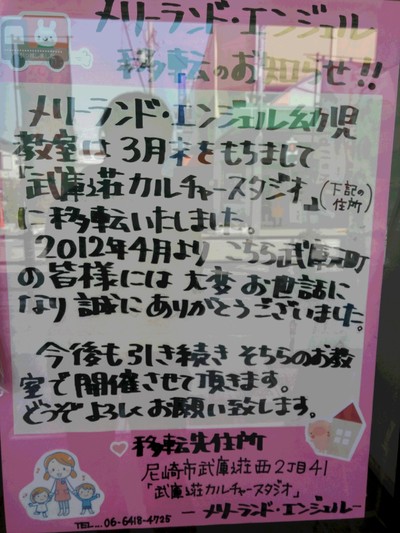 メリーランド・エンジェル
移転のお知らせ!!
メリーランド・エンジェル幼児
教室は3月末をもちまして
「武庫之荘カルチャースタジオ」(下記の住所)
に移転いたしました。
2012年4月より こちら武庫元町
の皆様には 大変 お世話に
なり 誠にありがとうございました。
今後も引き続き そちらのお教
室で開催させて頂きます。
どうぞ よろしく お願い致します。
移転先住所
尼崎市武庫之荘西2丁目41
「武庫之荘カルチャースタジオ」
ー メリーランド・エンジェルー
TEL...06-6418-4725